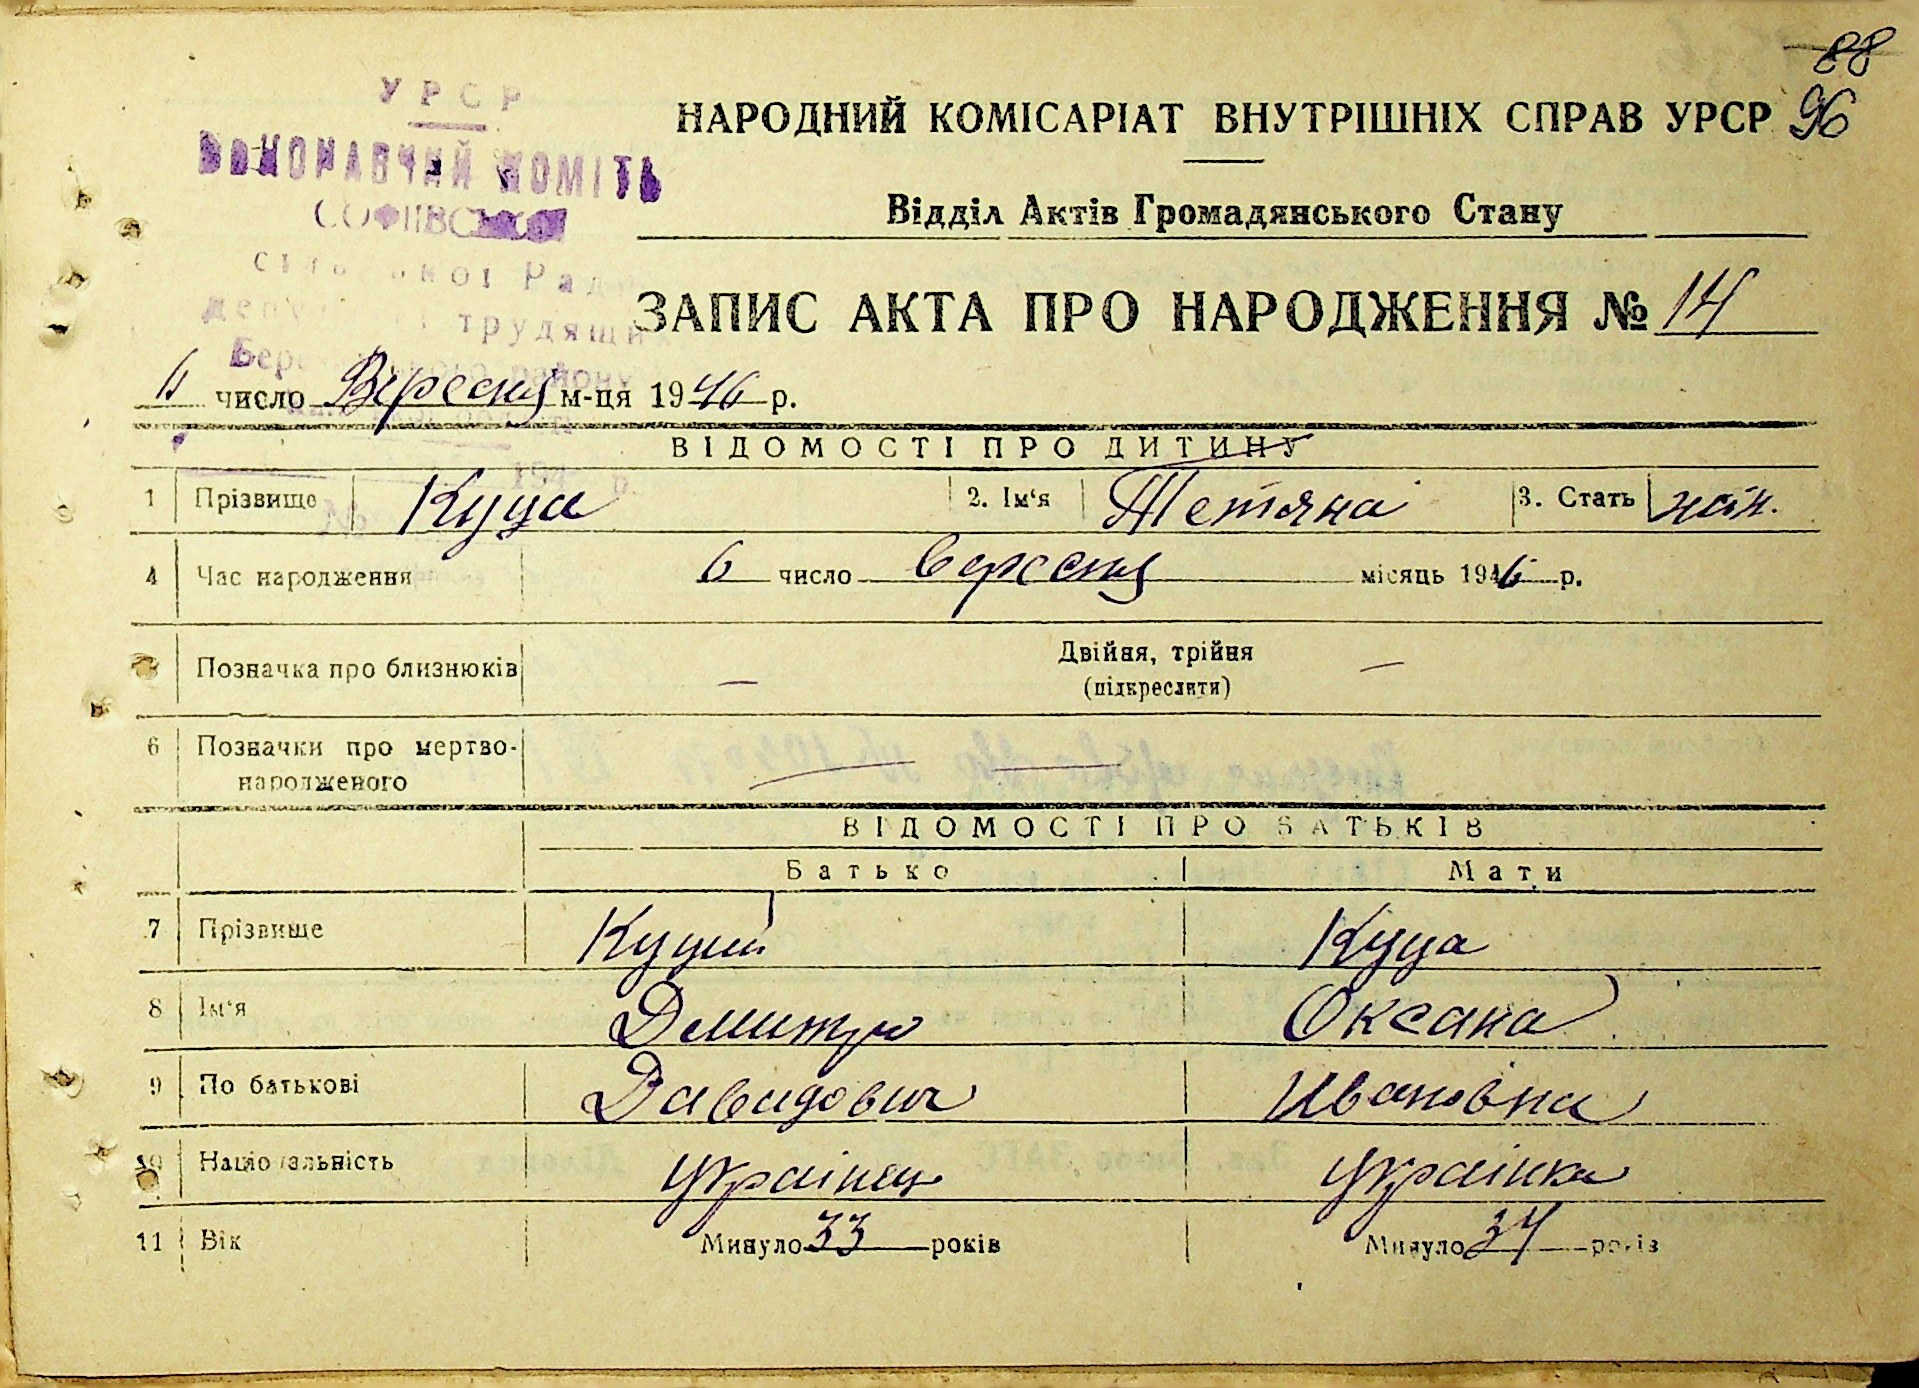 88
96
УРСР
ВИКОНАВЧИЙ КОМІТЕТ
СОФІЇВСЬКОЇ
сільської Ради
депутатів трудящих
району
194 р.
№
НАРОДНИЙ КОМІСАРІАТ ВНУТРІШНІХ СПРАВ УРСР
Відділ Актів Громадянського Стану
ЗАПИС АКТА ПРО НАРОДЖЕННЯ № 14
число Вересня м-ця 1946 р.
ВІДОМОСТІ ПРО ДИТИНУ
1 Прізвище Куца 2. Ім‘я Тетяна 3. Стать жін.
4 Час народження 6 число вересня місяць 1946 р.
Позначка про близнюків — Двійня, трійня —
(підкреслити)
6 Позначки про мертво-
народженого — —
ВІДОМОСТІ ПРО БАТЬКІВ
Батько Мати
7 Прізвище Куций Куца
8 Ім‘я Дмитро Оксана
9 По батькові Давидович Ивановна
10 Національність Українец Українка
11 Вік Минуло 33 років Минуло 34 років